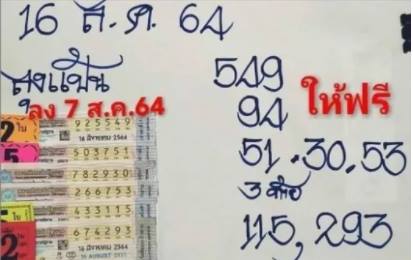 16 ส.ค. 64
ลุงแป้น
ลง 7 ส.ค.64
549
94
ให้ฟรี
51.30.53
3 ตัว
115, 293
2 ใบ
925549
16 สิงหาคม 2564
5
503751
782930
266753
433115
2
674293
16 สิงหาคม 2564
16 AUGUST 2021